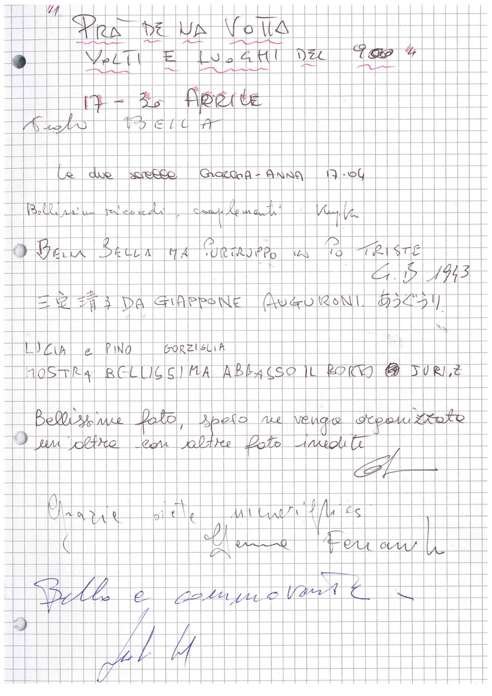 "PRA DE NA VOTTA
VOLTI E LUOGHI DEL 900"
17 - 30 APRILE
BELLA
Le due sorelle GIORGIA-ANNA 17-04
Bellissimi ricordi, complimenti
BELLA MA PURTROPPO UN PO TRISTE
G.B 1943
DA GIAPPONE AUGURONI. あうぐうり
LUCIA e PINO GORZIGLIA
MOSTRA BELLISSIMA ABBASSO IL BORGO JURI.Z
Bellissime foto, spero ne venga organizzata
un'altra con altre foto inedite
Grazie siete
Bello e commovente -